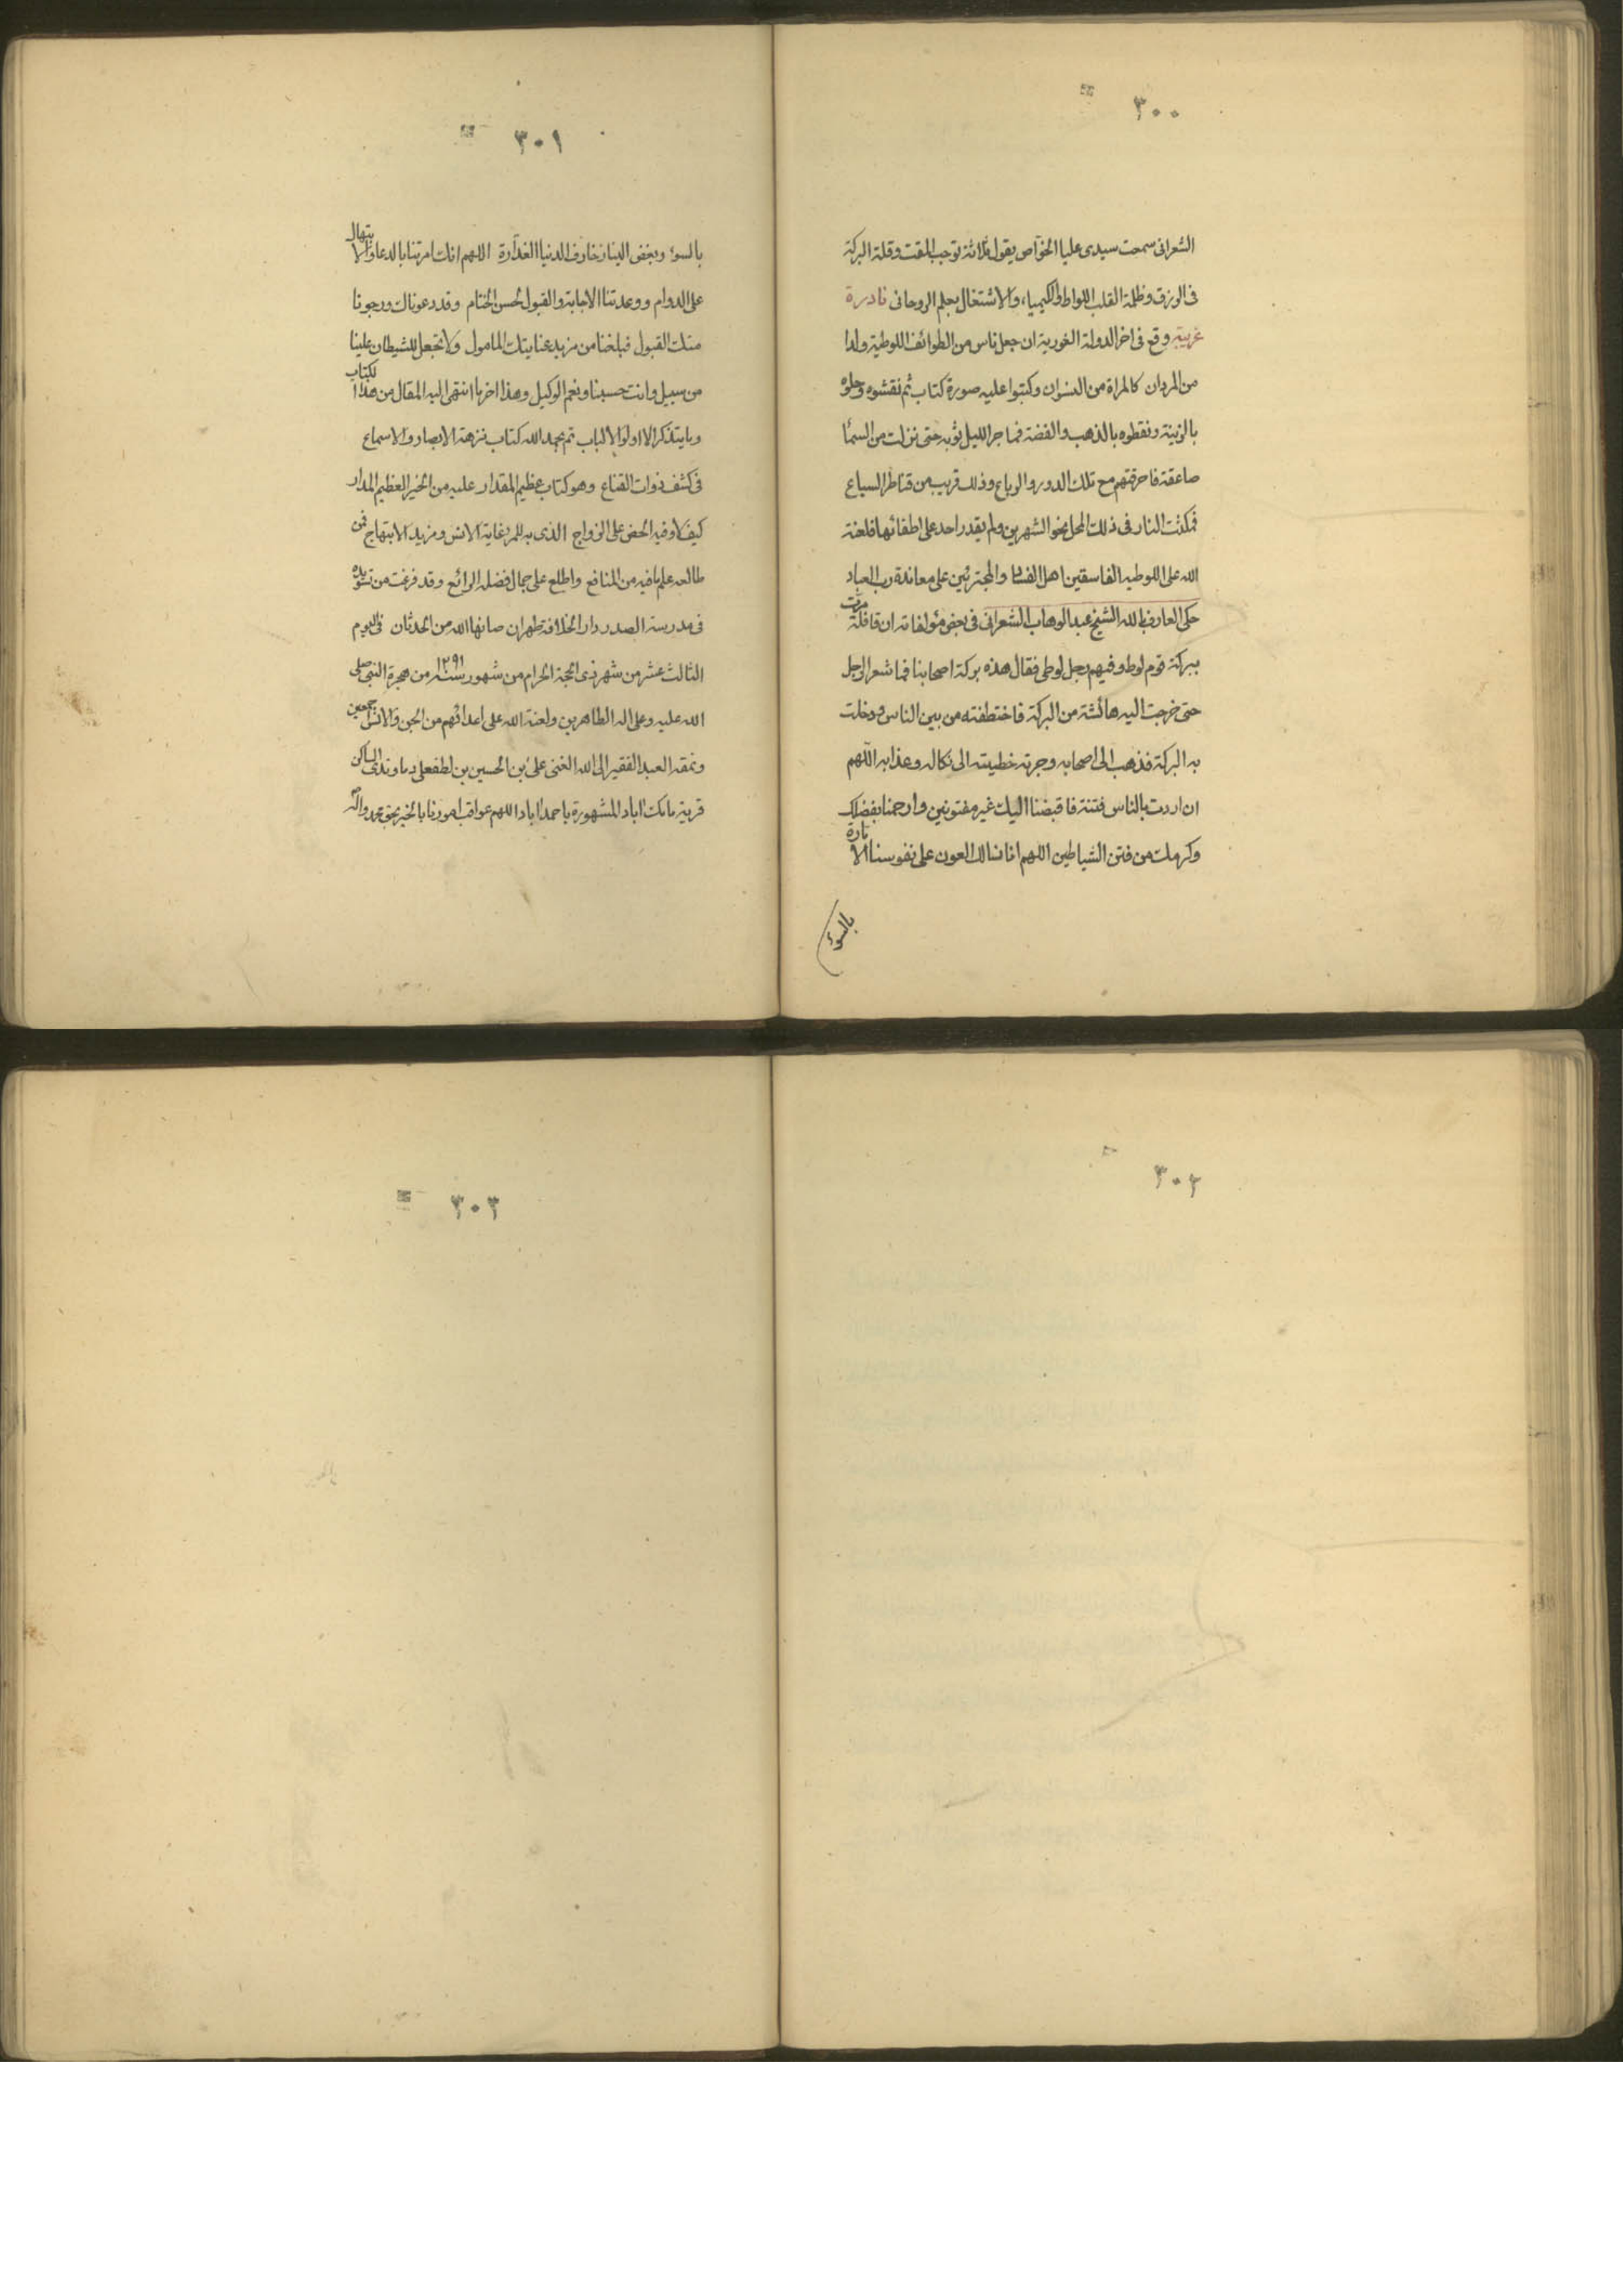 ٣٠٠
الشعرانى سمعت سيدى عليا الخوّاص يقول ثلاثة توجب المقت وقلة البركة
فى الرزق وظلمة القلب اللواط والكيمياء والاشتغال بعلم الروحانى نادرة
غريبة وقع فى اخر الدولة الغورية ان جعل ناس من الطوائف اللوطية ولدا
من المردان كالمراة من النسوان وكتبوا عليه صورة كتاب ثم نقشوه وجلوه
بالزينة ونقطوه بالذهب والفضة فما جر الليل ثوبه حتى نزلت من السمأ
صاعقة فاحرقتهم مع تلك الدور والرباع وذلك قريب من قناطر السباع
فمكثت النار فى ذلك المحل نحو الشهرين ولم يقدر احد على اطفائها فلعنة
الله على اللوطيه الفاسقين اهل الفساد والمجترئين على معاندة رب العباد
حكى العارف بالله الشيخ عبد الوهاب الشعرانى فى بعض مؤلفاته ان قافلة مرّت
ببركة قوم لوط وفيهم رجل لوطى فقال هذه بركة اصحابنا فما شعر الرجل
حتى خرجت اليه هائشة من البركة فاختطفته من بين الناس ودخلت
به البركة فذهب الى اصحابه وجرته خطيئته الى نكاله وعذابه اللهم
ان اردت بالناس فتنة فاقبضنا اليك غير مفتونين وارحمنا بفضلك
وكرمك من فتن الشياطين اللهم انا نسالك العون على نفوسنا الامارة
بالسوء
٣٠١
بالسوء وبغض الينا زخارف الدنيا الغدّارة اللهم انك امرتنا بالدعا والابتهال
على الدوام ووعدتنا الاجابة والقبول لحسن الختام وقد دعوناك ورجونا
منك القبول فبلغنا من مزيد عنايتك المامول ولا تجعل للشيطان علينا
من سبيل وانت حسبنا ونعم الوكيل وهذا اخر ما انتهى اليه المقال من هذا الكتاب
وما يتذكر الا اولوا الالباب تم بحمد الله كتاب نزهة الابصار والاسماع
فى كشف ذوات القناع وهو كتاب عظيم المقدار عليه من الخير العظيم المدار
كيف لا وفيه الحض على الزواج الذى به للمرء غاية الانس ومزيد الابتهاج فمن
طالعه علم ما فيه من المنافع واطلع على جمال فضله الرائع وقد فرغت من تسويده
فى مدرسة الصدر دار الخلافة طهران صانها الله من الحدثان فى اليوم
الثالث عشر من شهر ذى الحجة الحرام من شهور سنة ١٢٩١ من هجرة النبى صلى
الله عليه وعلى اله الطاهرين ولعنة الله على اعدائهم من الجن والانس اجمعين
ونمقه العبد الفقير الى الله الغنى على بن الحسين بن لطفعلى دماوندى الساكن
قرية مامك اباد المشهورة باحمد اباد اللهم عواقب امورنا بالخير بحق محمد واله
٣٠٢
٣٠٣